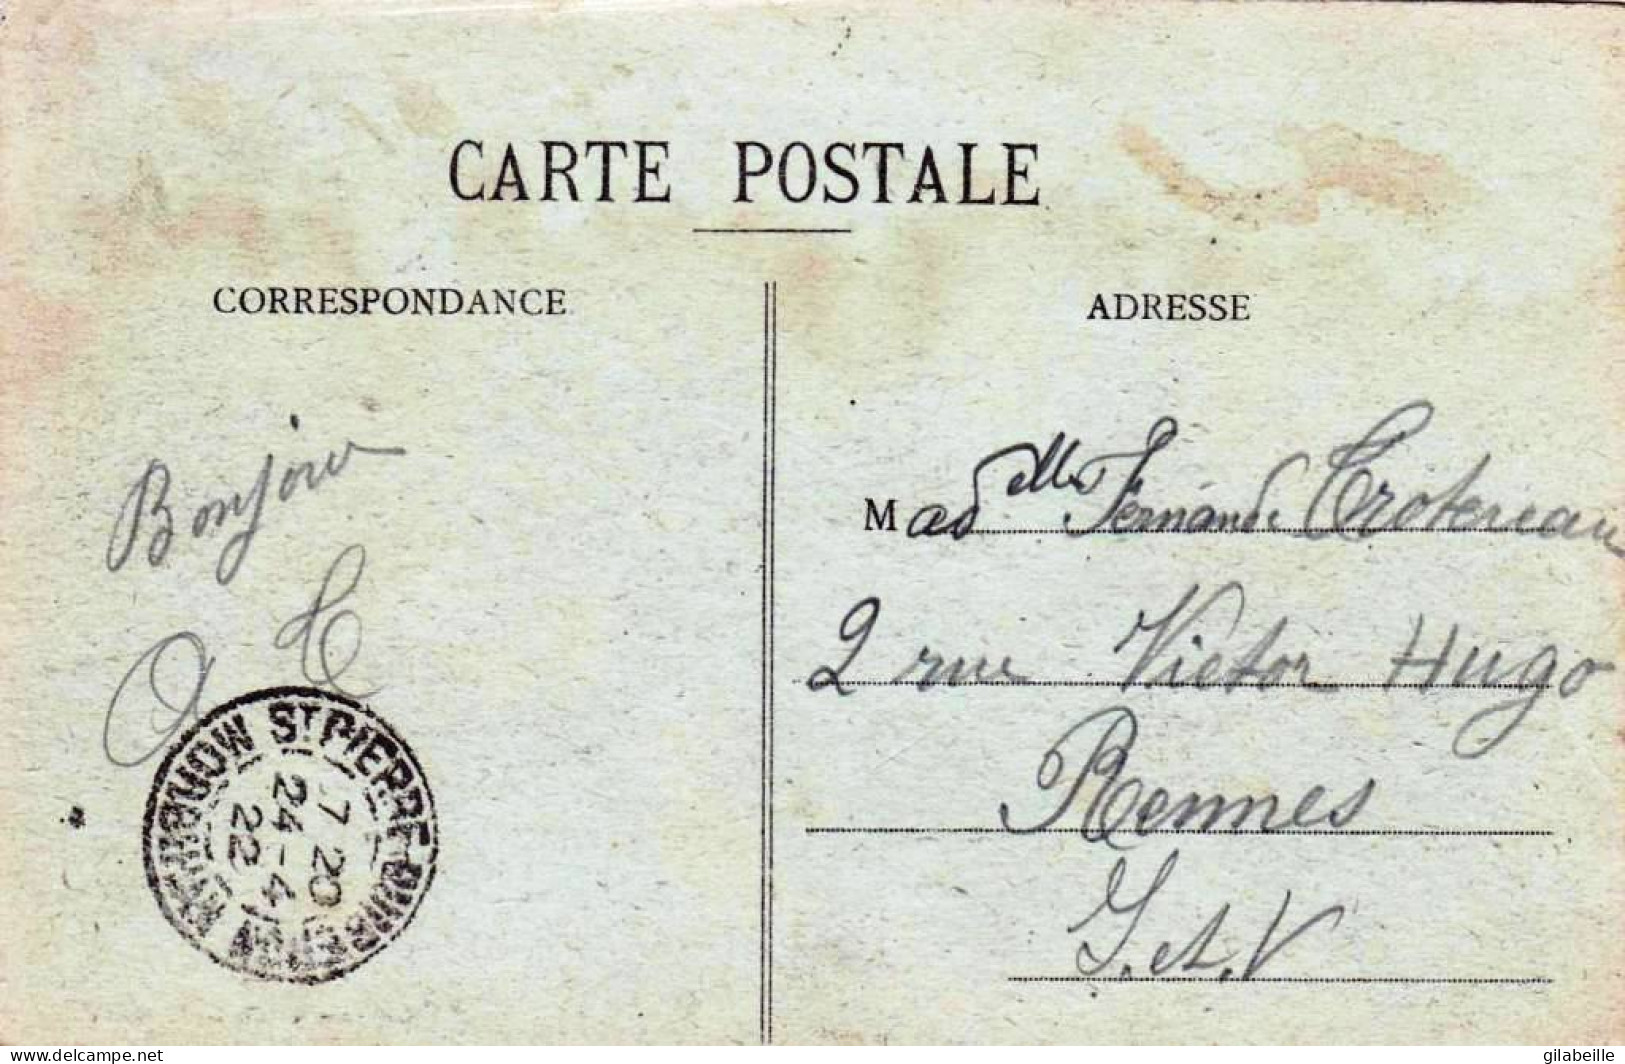 CARTE POSTALE
CORRESPONDANCE
Bonjour
ADRESSE
Mad elle Fernande Crotereau
2 rue Victor Hugo
Rennes
I. et. V
ST PIERRE
7 20
24-4
22
www.delcampe.net
gilabeille